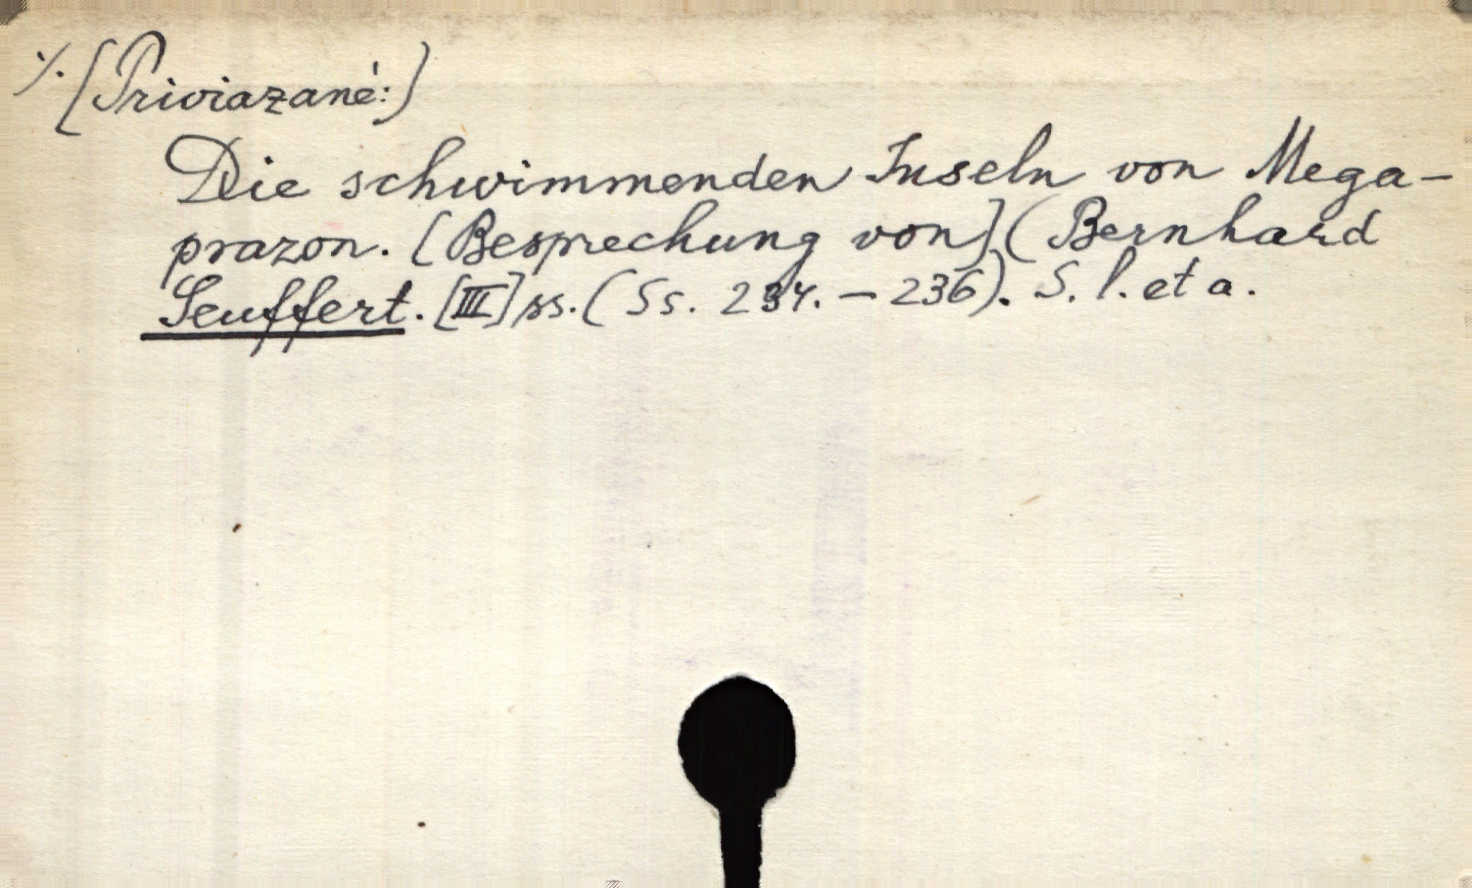 ./. [Priviazané:]
Die schwimmenden Inseln von Mega-
prazon. [Besprechung von] (Bernhard
Seuffert. [III] ss. (Ss. 234. – 236). S. l. et a.